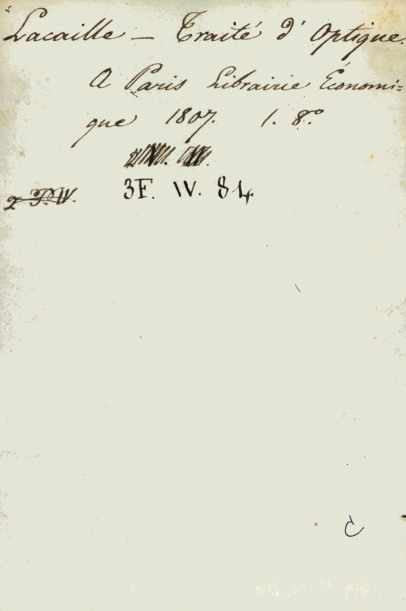 Lacaille — Traité d'Optique.
A Paris Librairie Économi=
que 1807. 1. 8.º
3F. IV. 84.